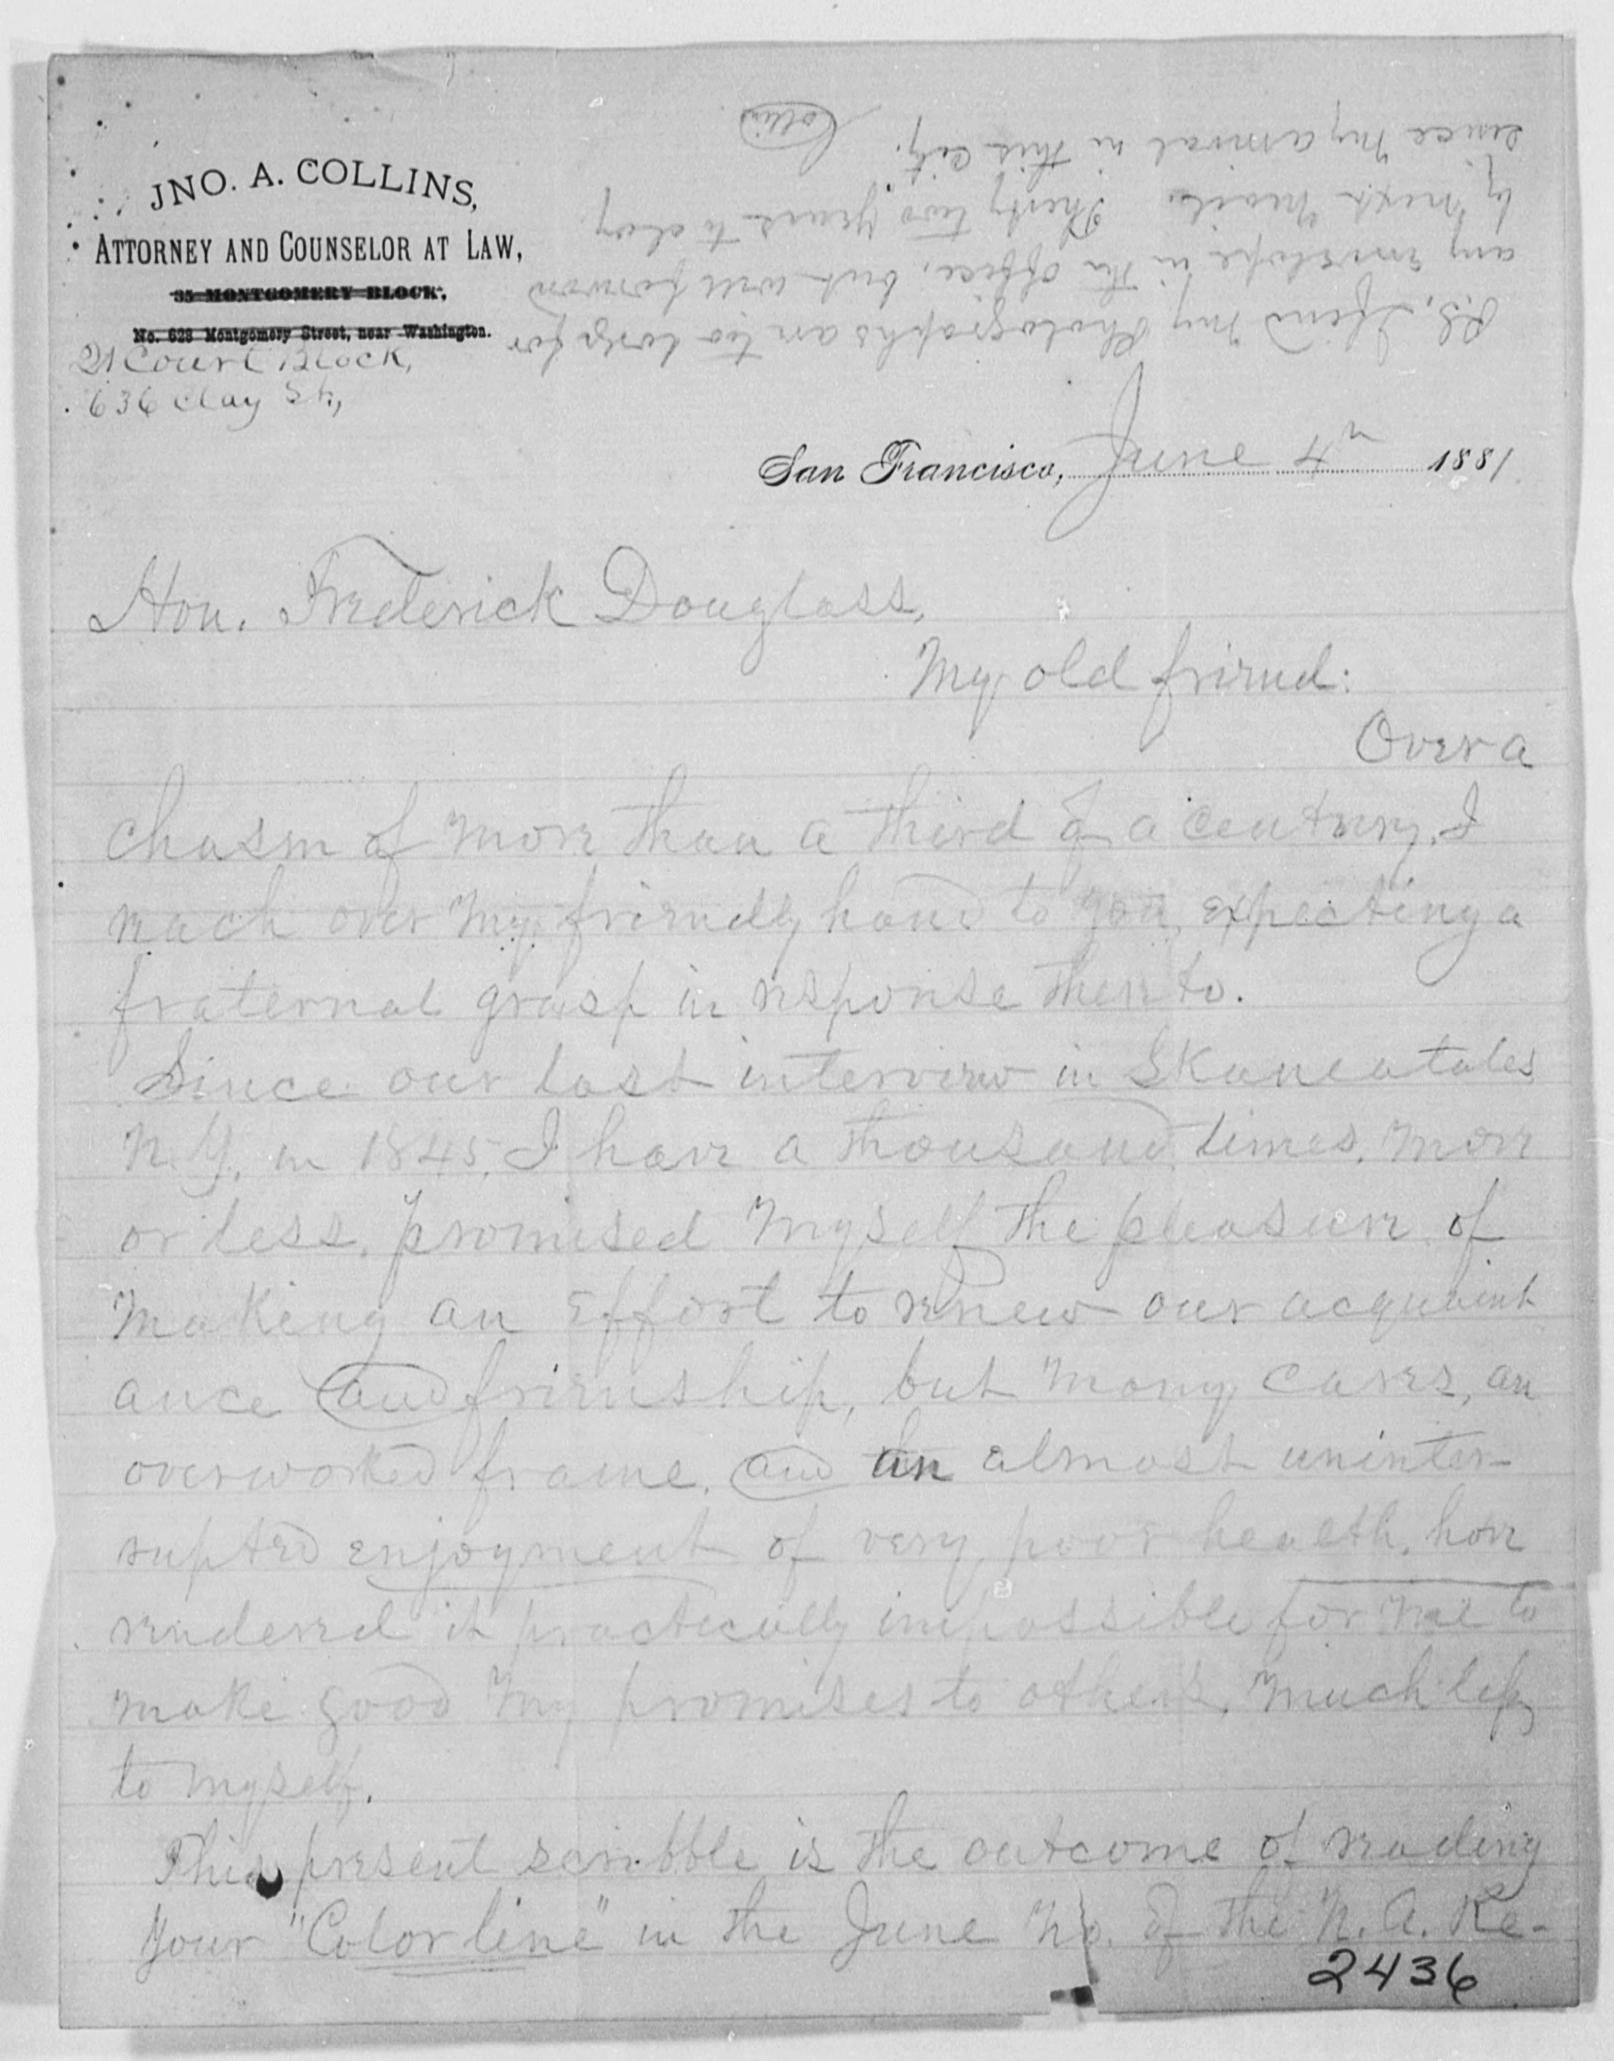 JNO. A. COLLINS,
ATTORNEY AND COUNSELOR AT LAW,
35 MONTGOMERY BLOCK,
No. 628 Montgomery Street, near Washington.
21 Court Block,
636 Clay St,
P.S. I find my Photographs are too large for
any envelope in the office, but will forward
by next mail. Thirty two years to day
since my arrival in this city.
Collins
San Francisco, June 4th 1881
Hon. Frederick Douglass,
My old friend:
Over a
chasm of more than a third of a century, I
reach over my friendly hand to you, expecting a
fraternal grasp in response thereto.
Since our last interview in Skaneatales
N.Y. in 1845, I have a thousand times, more
or less, promised myself the pleasure of
making an effort to renew our acquaint
ance and frienship, but many cares, an
overworked frame, and an almost uninter-
rupted enjoyment of very poor health, have
rendered it practically impossible for me to
make good my promises to others, much less,
to myself.
This present scribble is the outcome of reading
your "Color line" in the June No. of the N. A. Re-
2436